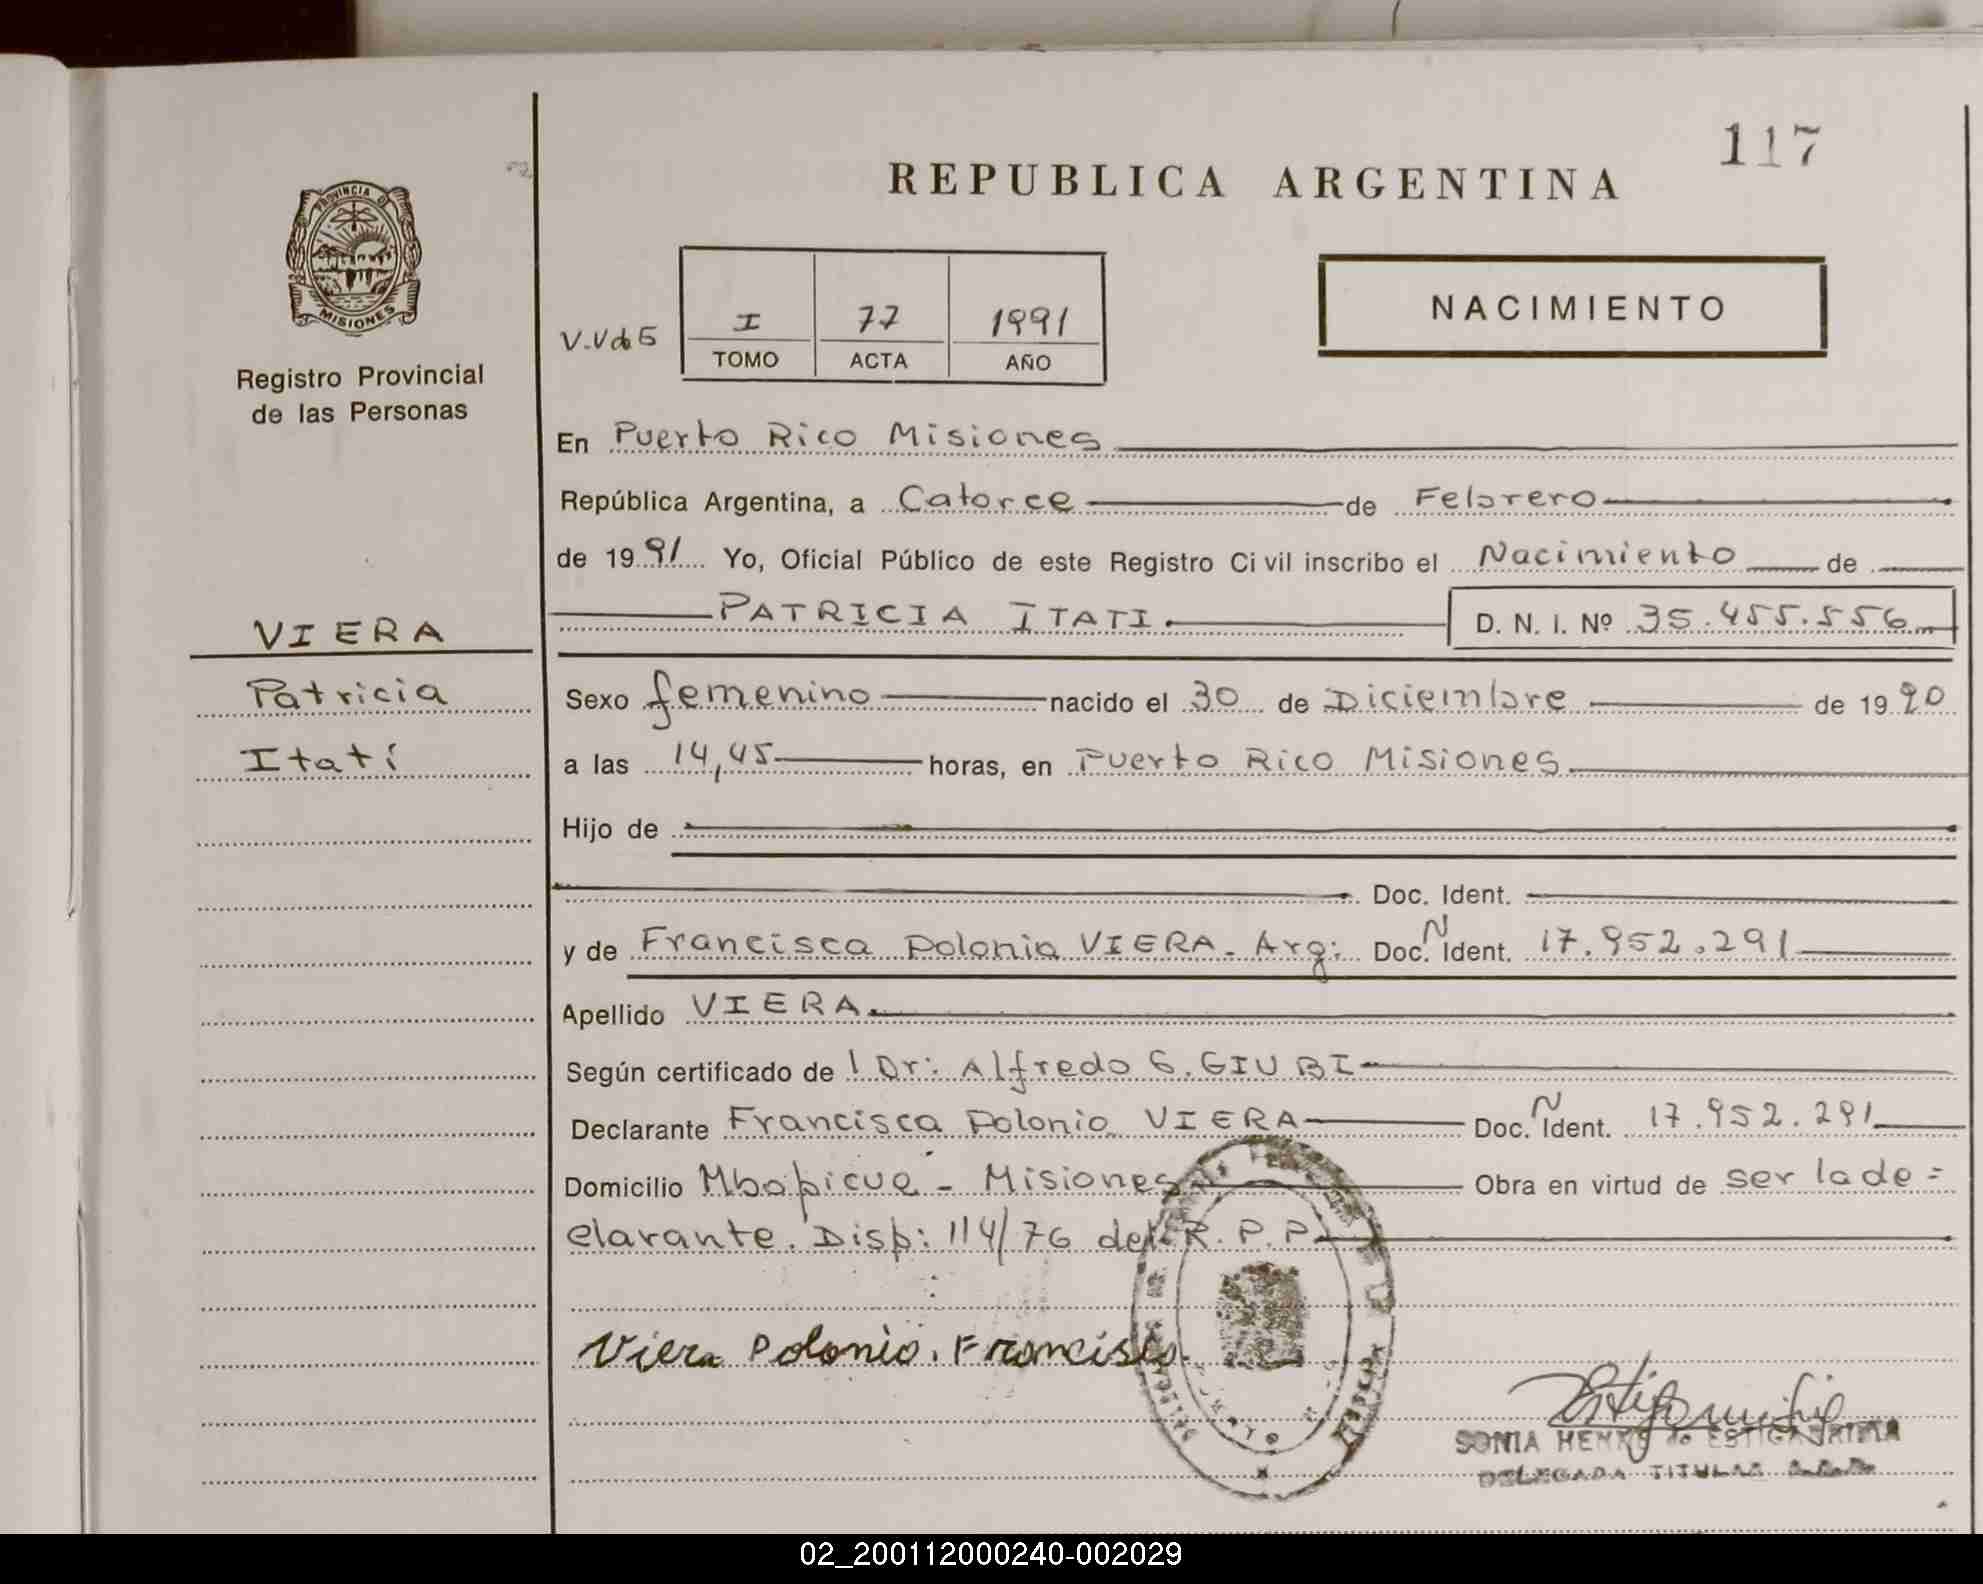 117
REPUBLICA ARGENTINA
PROVINCIA DE
MISIONES
Registro Provincial
de las Personas
NACIMIENTO
V.VdeG
I 77 1991
TOMO ACTA AÑO
En Puerto Rico Misiones
República Argentina, a Catorce de Febrero
de 1991 Yo, Oficial Público de este Registro Civil inscribo el Nacimiento de
PATRICIA ITATI. D. N. I. Nº 35.455.556
VIERA
Patricia
Itatí
Sexo femenino nacido el 30 de Diciembre de 1990
a las 14,45 horas, en Puerto Rico Misiones
Hijo de
Doc. Ident.
y de Francisca Polonia VIERA - Arg: Doc. N Ident. 17.952.291
Apellido VIERA.
Según certificado de l Dr: Alfredo G. GIUBI
Declarante Francisca Polonia VIERA Doc. N Ident. 17.952.291
Domicilio Mbopicuá - Misiones Obra en virtud de ser la de=
clarante. Disp: 114/76 del R.P.P.
Viera Polonia. Francisca.
SONIA HENKS de ESTIGARRIBIA
DELEGADA TITULAR
02_200112000240-002029